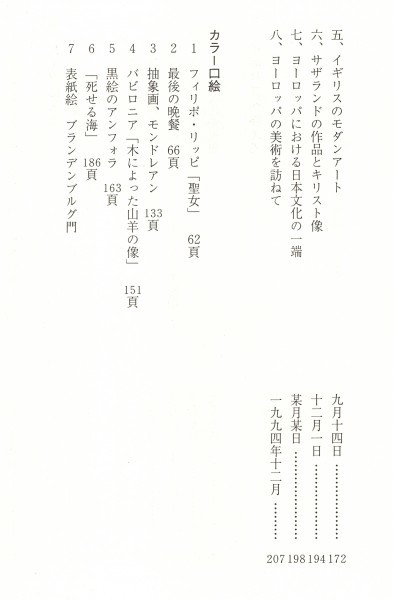 五、イギリスのモダンアート 九月十四日 ……………… 172
六、サザランドの作品とキリスト像 十二月一日 ……………… 194
七、ヨーロッパにおける日本文化の一端 某月某日 ……………… 198
八、ヨーロッパの美術を訪ねて 一九九四年十二月 ……… 207
カラー口絵
1 フィリポ・リッピ「聖女」 62頁
2 最後の晩餐 66頁
3 抽象画、モンドレアン 133頁
4 バビロニア「木によった山羊の像」 151頁
5 黒絵のアンフォラ 163頁
6 「死せる海」 186頁
7 表紙絵 ブランデンブルグ門